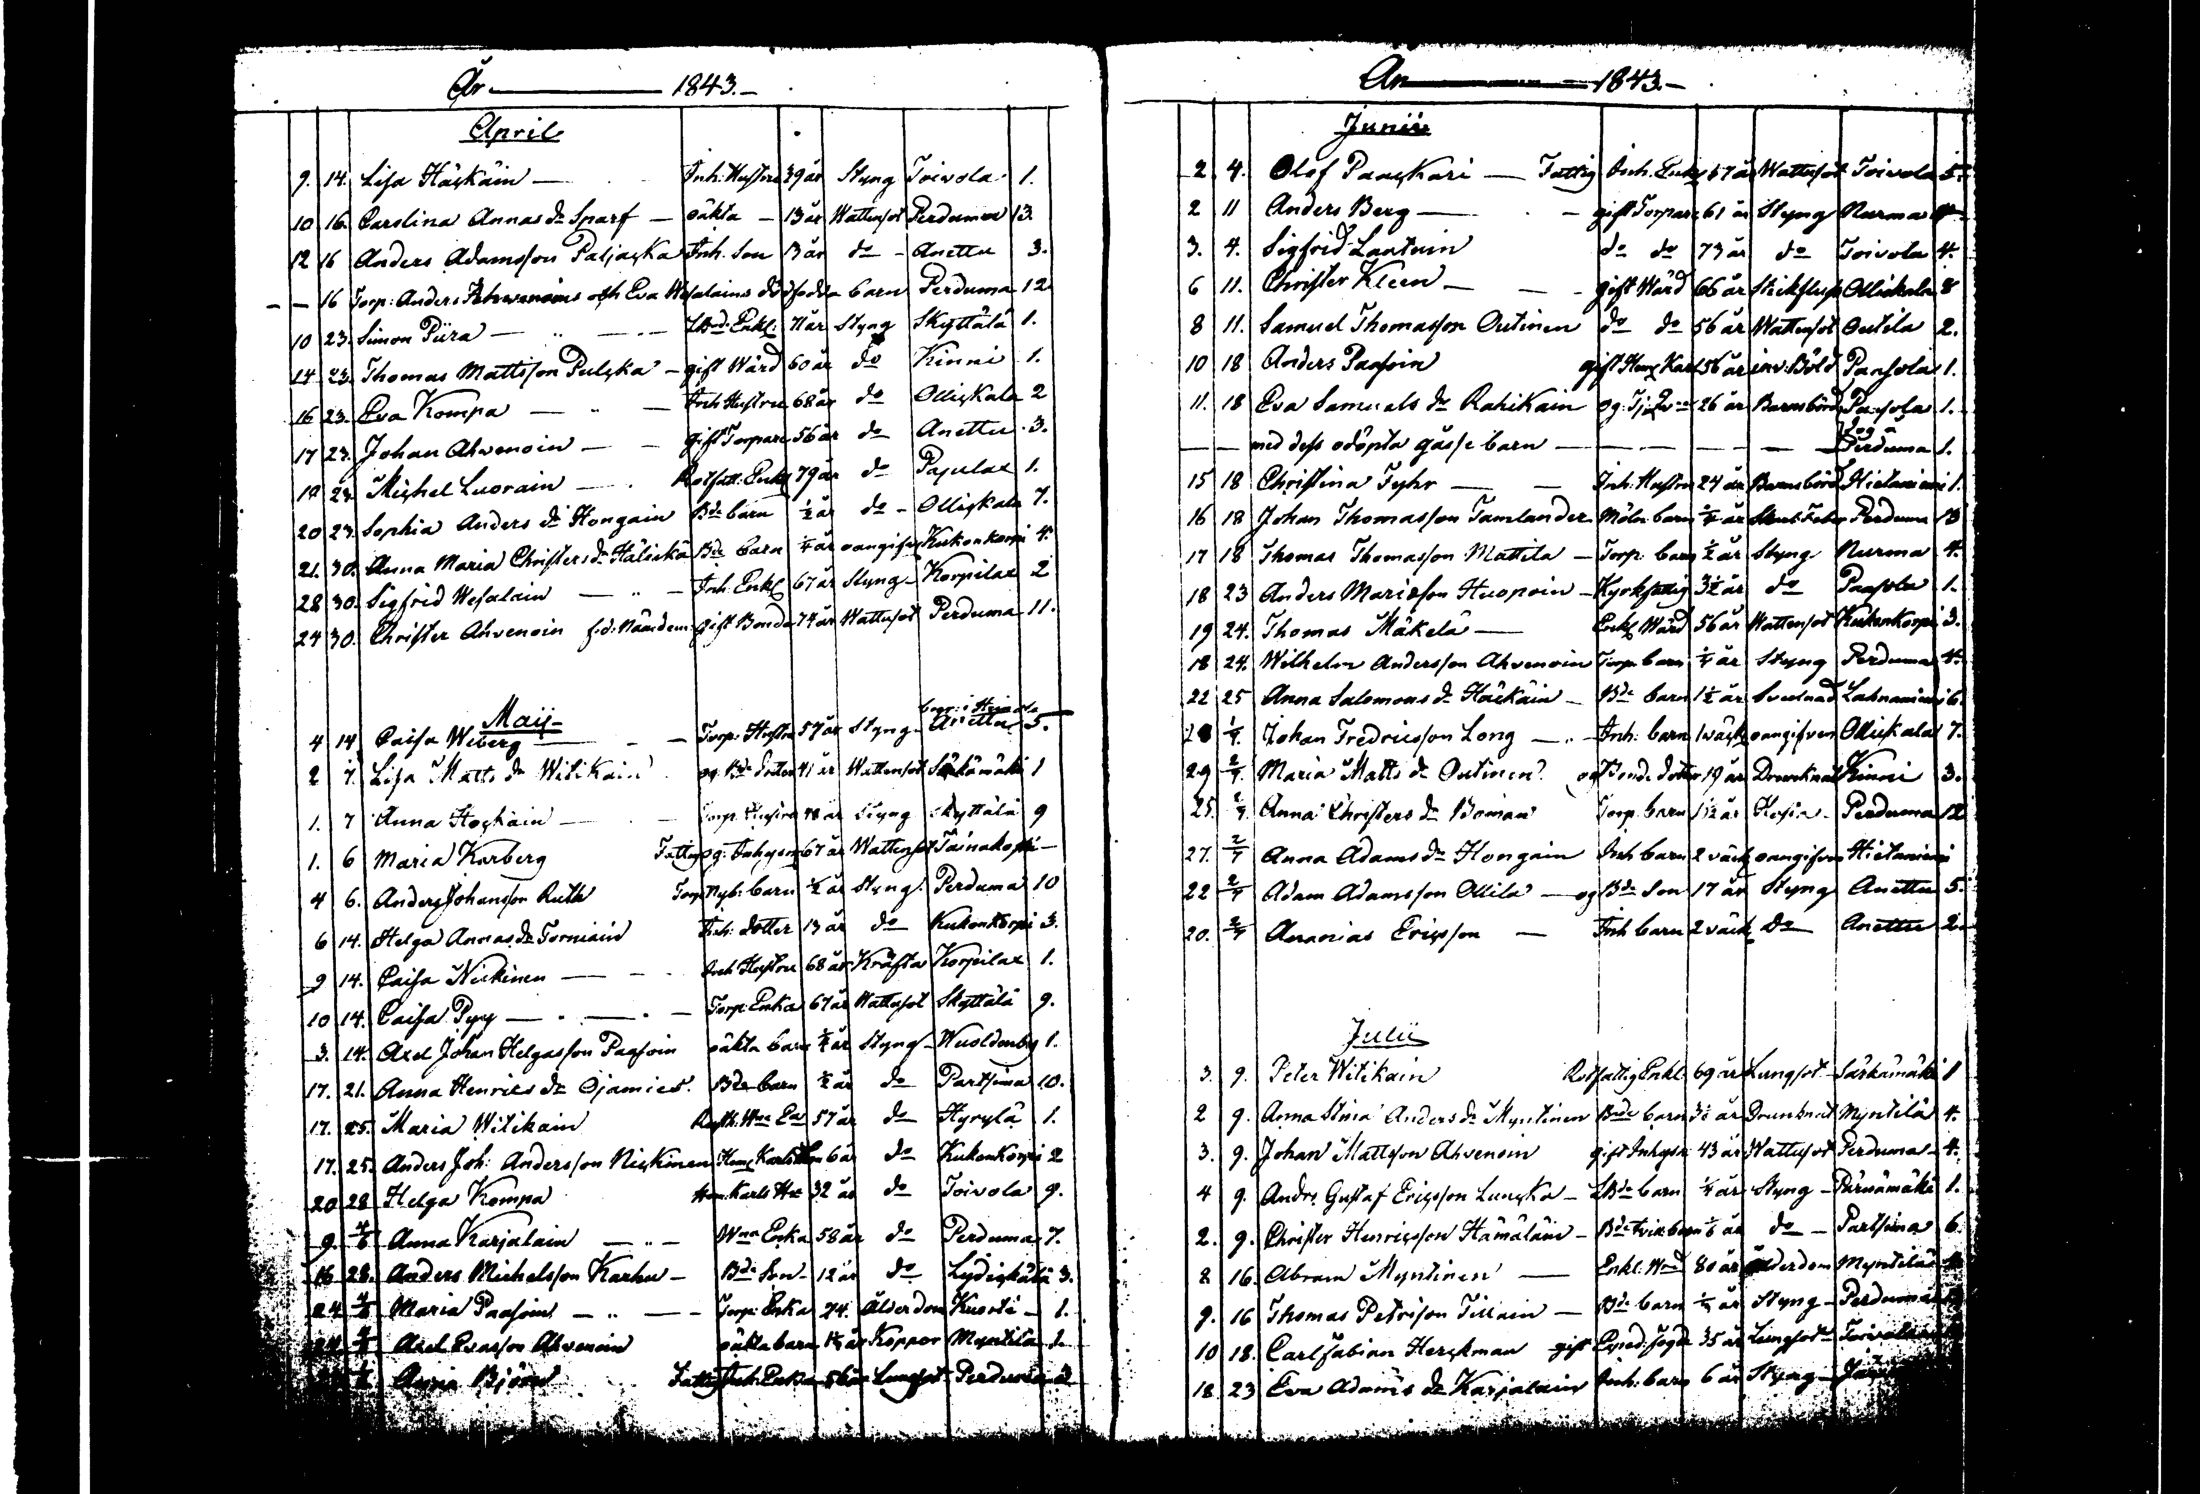 År 1843.
April
9. 14. Lisa Häskäin Inh. Hustru 39 år Styng Toivola 1.
10 16. Carolina Annas dr Snarf oäkta 13 år Wattusot Perduma 13.
12 16 Anders Adamsson Paljacka Inh. Son 13 år do Anettu 3.
16 Torp: Anders och Eva dödfödda barn Perduma 12
10 23. Simon Püra Enkl: 71 år Styng Skyttälä 1.
14 23. Thomas Mattsson Pulcka gift Wärd 60 år do Kinni 1.
16 23. Eva Kompa Inh Hustru 68 år do Ollickala 2
17 23. Johan Ahvenoin gift Torpare 56 år do Anettu 3.
19 23. Michel Luorain Rotfatt: Enkl 79 år do Pajulax 1.
20 23. Sophia Anders dr Hongain Bde barn 1/2 år do Ollickala 7.
21. 30. Anna Maria Christers dr Bde barn 1/4 år oangifven Kukonkorpi 4.
28 30. Sigfrid Wesalain Inh. Enkl 67 år Styng Korpilax 2
24 30. Christer Ahvenoin f.d. Nämdem: gift Bonde 74 år Wattusot Perduma 11.
Maij
begr: i Heinola
4 14 Caisa Weberg Torp: Hustru 57 år Styng Anettu 5.
2 7. Lisa Matts dr Witikain og. Bde dotter 41 år Wattusot Särkämäki 1
1. 7 Anna Hockain Torp. Hustru 48 år Styng Skyttälä 9
1. 6 Maria Korberg Fattig og: Inhyses 67 år Wattusot
4 6. Anders Johansson Ruth Torp Nyb: barn 1/2 år Styng Perduma 10
6 14. Helga Annas dr Torniain Inh: dotter 13 år do Kukonkorpi 3.
9 14. Caisa Nickinen Inh Hustru 68 år Kräfta Korpilax 1.
10 14. Caisa Pyy Torp: Enka 67 år Wattusot Skyttälä 9.
3. 14. Axel Johan Helgasson Pasoin oäkta barn år Styng 1.
17. 21. Anna Henrics dr Ojamies. Bde barn 1/2 år do Partsima 10.
17. 25. Maria Witikain 57 år do Hyrylä 1.
17. 25. Anders Joh: Andersson Nickinen Hem: Karls 6 år do Kukonkorpi 2
20 28 Helga Kompa Hem: Karls Hu 32 år do Toivola 9.
9. 4/6 Anna Karjalain Wna Enka 58 år do Perduma 7.
16 28. Anders Michelsson Karhu Bde Son 12 år do Lydickälä 3.
24 4/6 Maria Pasoin Torp: Enka 74. Ålderdom Kuorti 1.
24 Axel Evasson Ahvenoin oäkta barn år Koppor Myntilä 1.
Anna Björn Fattig Inh: Enka 56 år Lungsot Perduma 2
År 1843.
Junii
2 4. Olof Paackari Fattig Inh. Enkl 57 år Wattusot Toivola 5.
2 11 Anders Berg gift Torpare 61 år Styng Nurma 4
3. 4. Sigfrid Lautain do do 73 år do Toivola 4.
6 11. Christer Kleen gift Wärd 66 år Ollickala 8
8 11. Samuel Thomasson Outinen do do 56 år Wattusot Outila 2.
10 18 Anders Pasoin gift Hem: Karl 56 år inv. Böld Pansola 1.
11. 18 Eva Samuels dr Rahikain og: Tj: 26 år Barnsbörd Pansola 1.
med dess odöpta gosse barn Perduma 1.
15 18 Christina Fyhr Inh: Hustru 24 år Barnsbörd Hietaniemi 1.
16 18 Johan Thomasson Tamlander Möln: barn 1/4 år Perduma 13
17 18 Thomas Thomasson Mattila Torp: barn 1/2 år Styng Nurma 4.
18 23 Anders Mariasson Huopoin Kyrkfattig 3 1/2 år do Pasola 1.
19 24. Thomas Mäkelä Enkl Wärd 56 år Wattusot Kukonkorpi 3.
18 24. Wilhelm Andersson Ahvenoin Torp. barn 1/4 år Styng Perduma 4.
22 25 Anna Salomons dr Häckäin Bde barn 1 1/2 år Lahnaniemi 6.
1/7. Johan Fredricsson Long Inh: barn 1 väck oangifven Ollickala 7.
29 2/7. Maria Matts dr Outinen og Bonde dotter 19 år Drunknat Kinni 3.
25. 2/7. Anna Christers dr Boman Torp barn 1 1/2 år Hosta Perduma 12
27. 2/7 Anna Adams dr Hongain Inh barn 2 väck oangifven Hietaniemi
22 2/7 Adam Adamsson Ollila og Bde Son 17 år Styng Anettu 5.
20. 2/7 Ananias Ericsson Inh barn 2 väck do Anettu 2.
Julii
3. 9. Peter Witikain Rotfattig Enkl. 69 år Lungsot Särkämäki 1
2 9. Anna Stina Anders dr Myntinen Bnde barn 3 1/2 år Drunknat Myntilä 4.
3. 9. Johan Mattsson Ahvenoin gift Inhyses 43 år Wattusot Perduma 4.
4 9. Andrs Gustaf Ericsson Luncka LBde barn 1/4 år Styng Pärnämäki 1.
2. 9. Christer Henricsson Hämäläin Bde do Partsima 6.
8 16. Abram Myntinen Enkl: Wrd 80 år ålderdom Myntilä 4.
9. 16 Thomas Petrisson Tillain Bde barn 1/4 år Styng Perduma
10 18. Carl Fabian Herckman gift 35 år Lungsot Toivola
18 23 Eva Adams dr Karjalain Inh: barn 6 år Styng